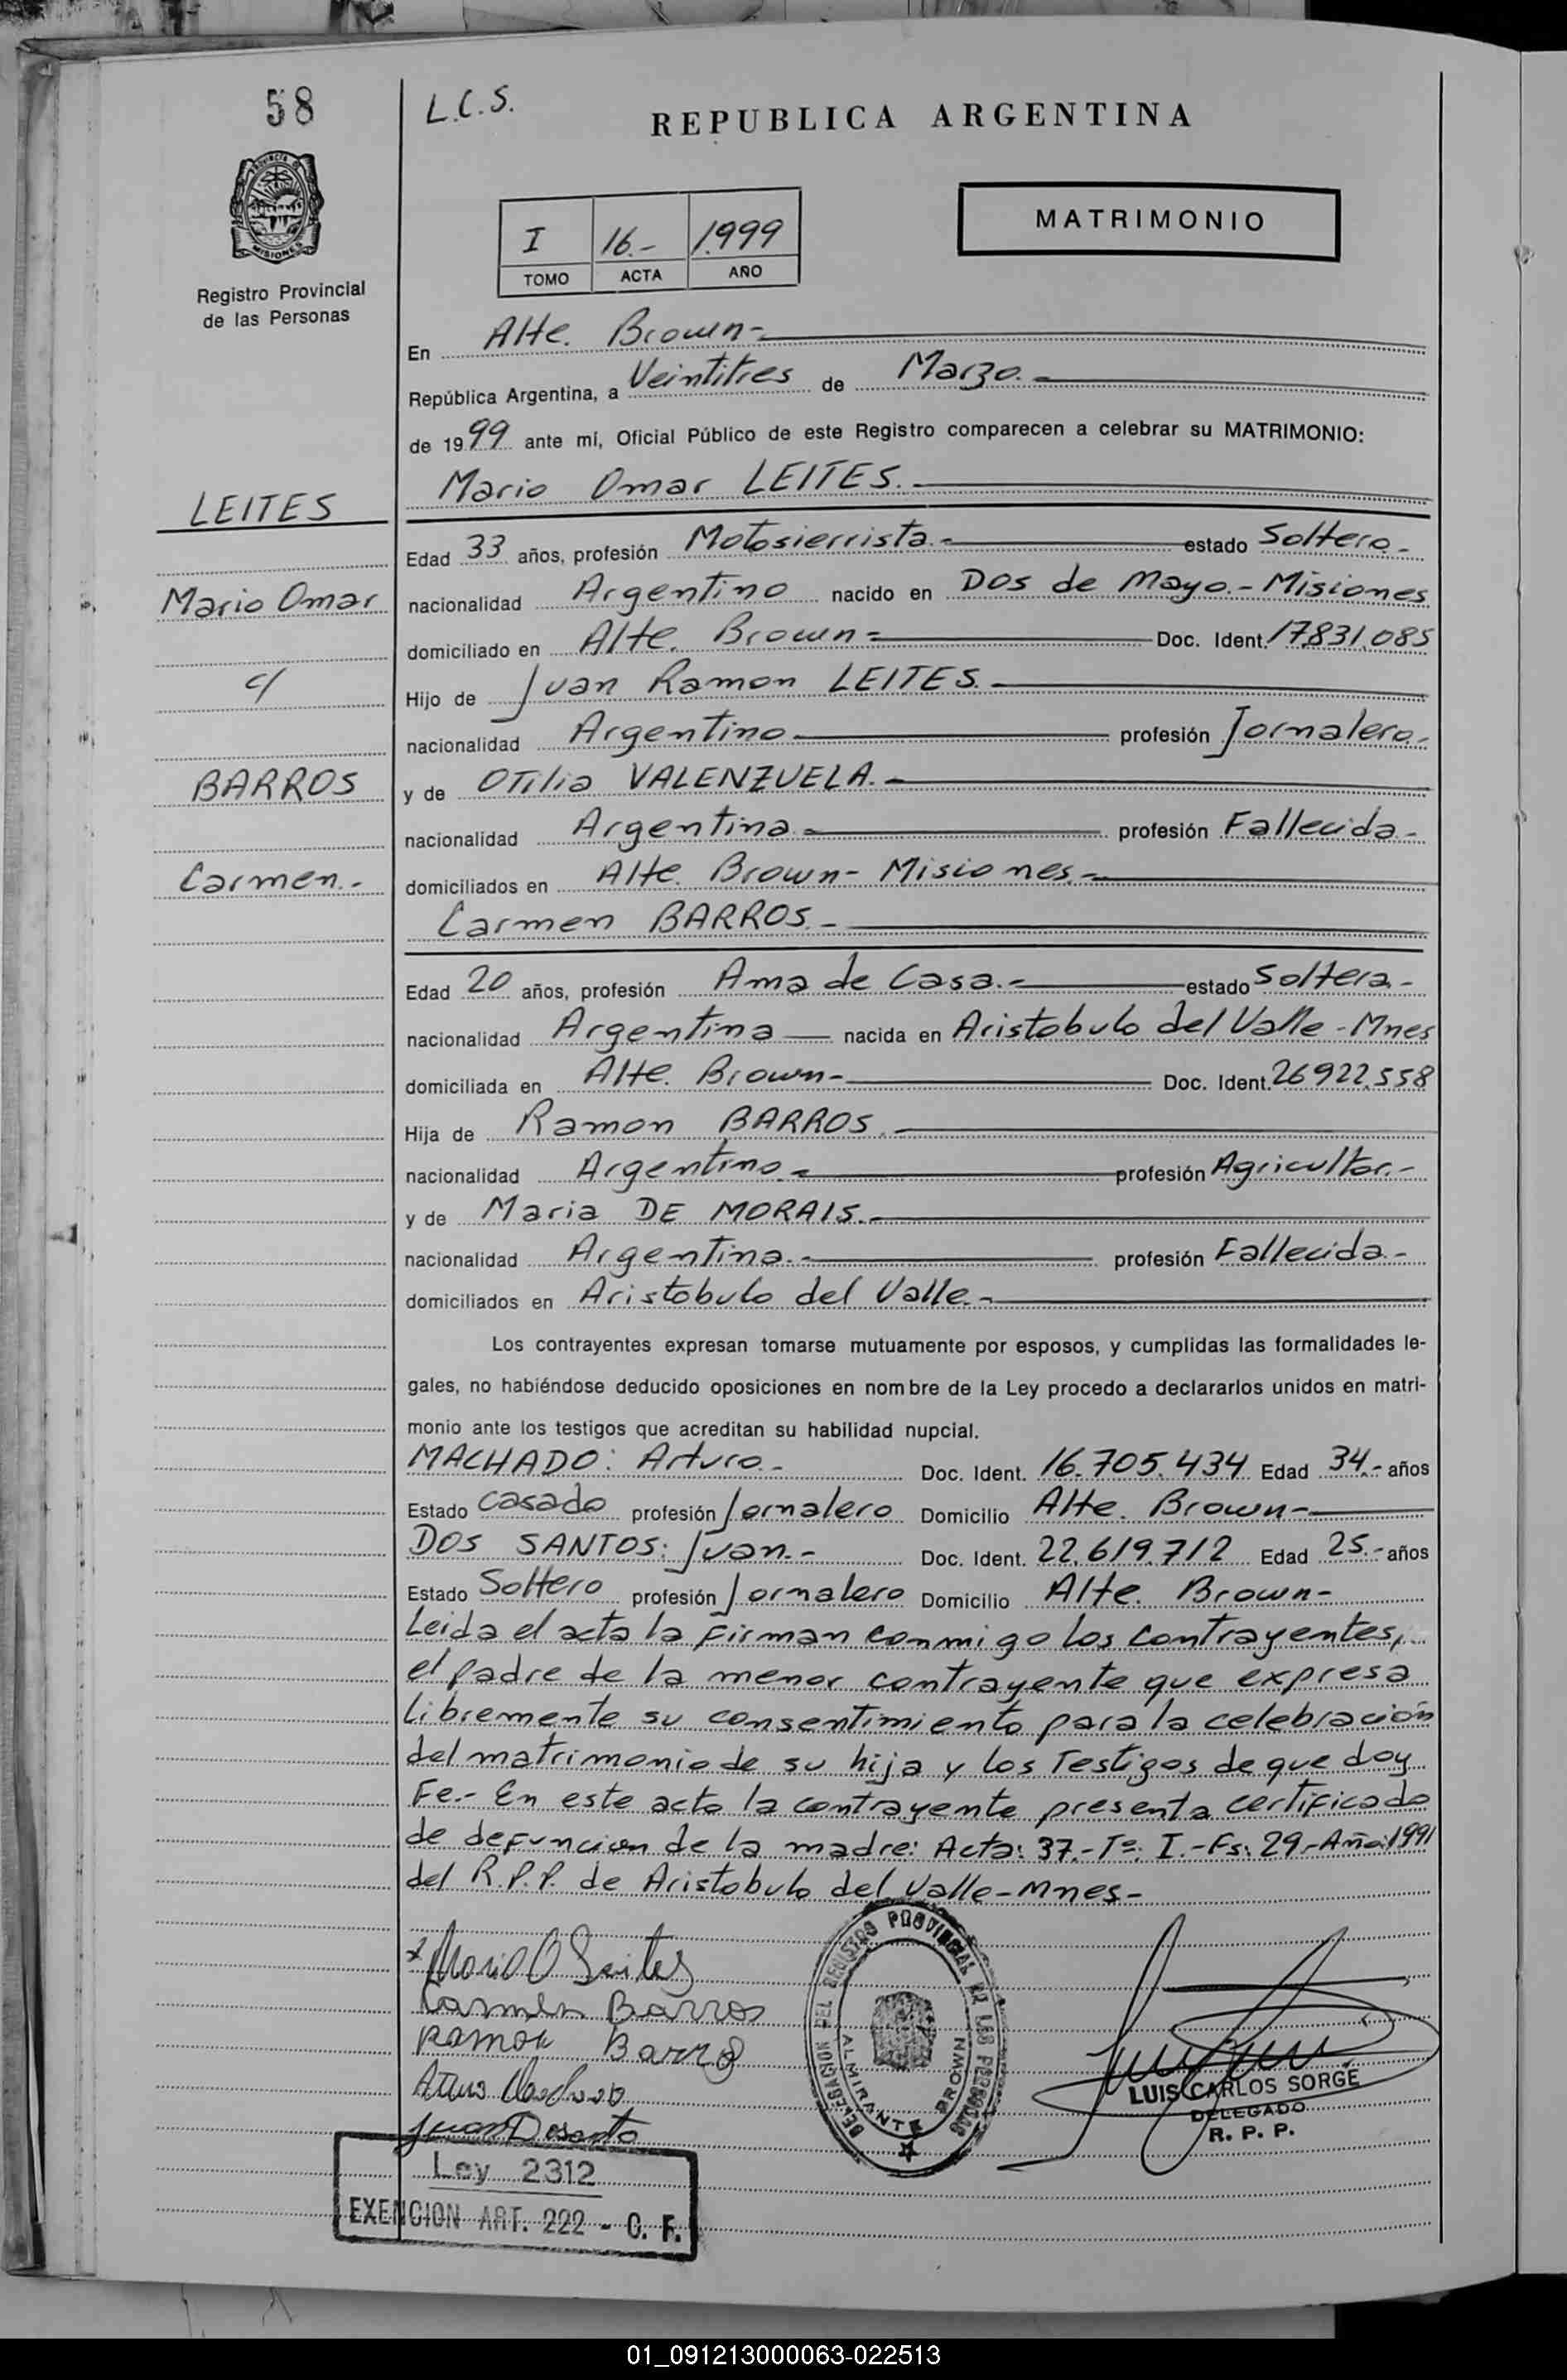 58
L.C.S.
REPUBLICA ARGENTINA
PROVINCIA DE MISIONES
Registro Provincial
de las Personas
I 16.- 1999
TOMO ACTA AÑO
MATRIMONIO
En Alte. Brown-
República Argentina, a Veintitres de Marzo.-
de 1999 ante mí, Oficial Público de este Registro comparecen a celebrar su MATRIMONIO:
Mario Omar LEITES.-
LEITES
Edad 33 años, profesión Motosierrista.- estado Soltero-
Mario Omar
nacionalidad Argentino nacido en Dos de Mayo.- Misiones
domiciliado en Alte. Brown- Doc. Ident. 17.831.085
c/
Hijo de Juan Ramon LEITES.-
nacionalidad Argentino- profesión Jornalero.-
BARROS
y de Otilia VALENZUELA.-
nacionalidad Argentina.- profesión Fallecida-
Carmen.-
domiciliados en Alte. Brown- Misiones.-
Carmen BARROS.-
Edad 20 años, profesión Ama de Casa.- estado Soltera.-
nacionalidad Argentina nacida en Aristobulo del Valle-Mnes
domiciliada en Alte. Brown- Doc. Ident. 26.922.558
Hija de Ramon BARROS.-
nacionalidad Argentino.- profesión Agricultor.-
y de Maria DE MORAIS.-
nacionalidad Argentina.- profesión Fallecida.-
domiciliados en Aristobulo del Valle.-
Los contrayentes expresan tomarse mutuamente por esposos, y cumplidas las formalidades le-
gales, no habiéndose deducido oposiciones en nombre de la Ley procedo a declararlos unidos en matri-
monio ante los testigos que acreditan su habilidad nupcial.
MACHADO: Arturo.- Doc. Ident. 16.705.434 Edad 34.- años
Estado casado profesión Jornalero Domicilio Alte. Brown-
DOS SANTOS: Juan.- Doc. Ident. 22.619.712 Edad 25.- años
Estado Soltero profesión Jornalero Domicilio Alte. Brown-
Leida el acta la firman conmigo los contrayentes,
el padre de la menor contrayente que expresa
libremente su consentimiento para la celebración
del matrimonio de su hija y los Testigos de que doy
Fe.- En este acto la contrayente presenta certificado
de defuncion de la madre: Acta: 37.-Tº: I.-Fs: 29.-Año:1991
del R.P.P. de Aristobulo del Valle-Mnes-
Mario O Leites
Carmen Barros
Ramón Barro
Arturo Machado
Juan Dosanto
DELEGACION DEL REGISTRO PROVINCIAL DE LAS PERSONAS
ALMIRANTE BROWN
LUIS CARLOS SORGE
DELEGADO
R. P. P.
Ley 2312
EXENCION ART. 222 - C. F.
01_091213000063-022513